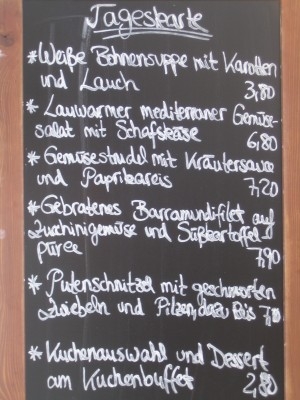 Tageskarte
* Weiße Bohnensuppe mit Karotten
und Lauch 3,80
* Lauwarmer mediterraner Gemüse-
salat mit Schafskäse 6,80
* Gemüsestrudel mit Kräutersauce
und Paprikareis 7,20
* Gebratenes Barramundifilet auf
Zucchinigemüse und Süßkartoffel-
püree 7,90
* Putenschnitzel mit geschmorten
Zwiebeln und Pilzen, dazu Reis
* Kuchenauswahl und Dessert
am Kuchenbuffet 2,80